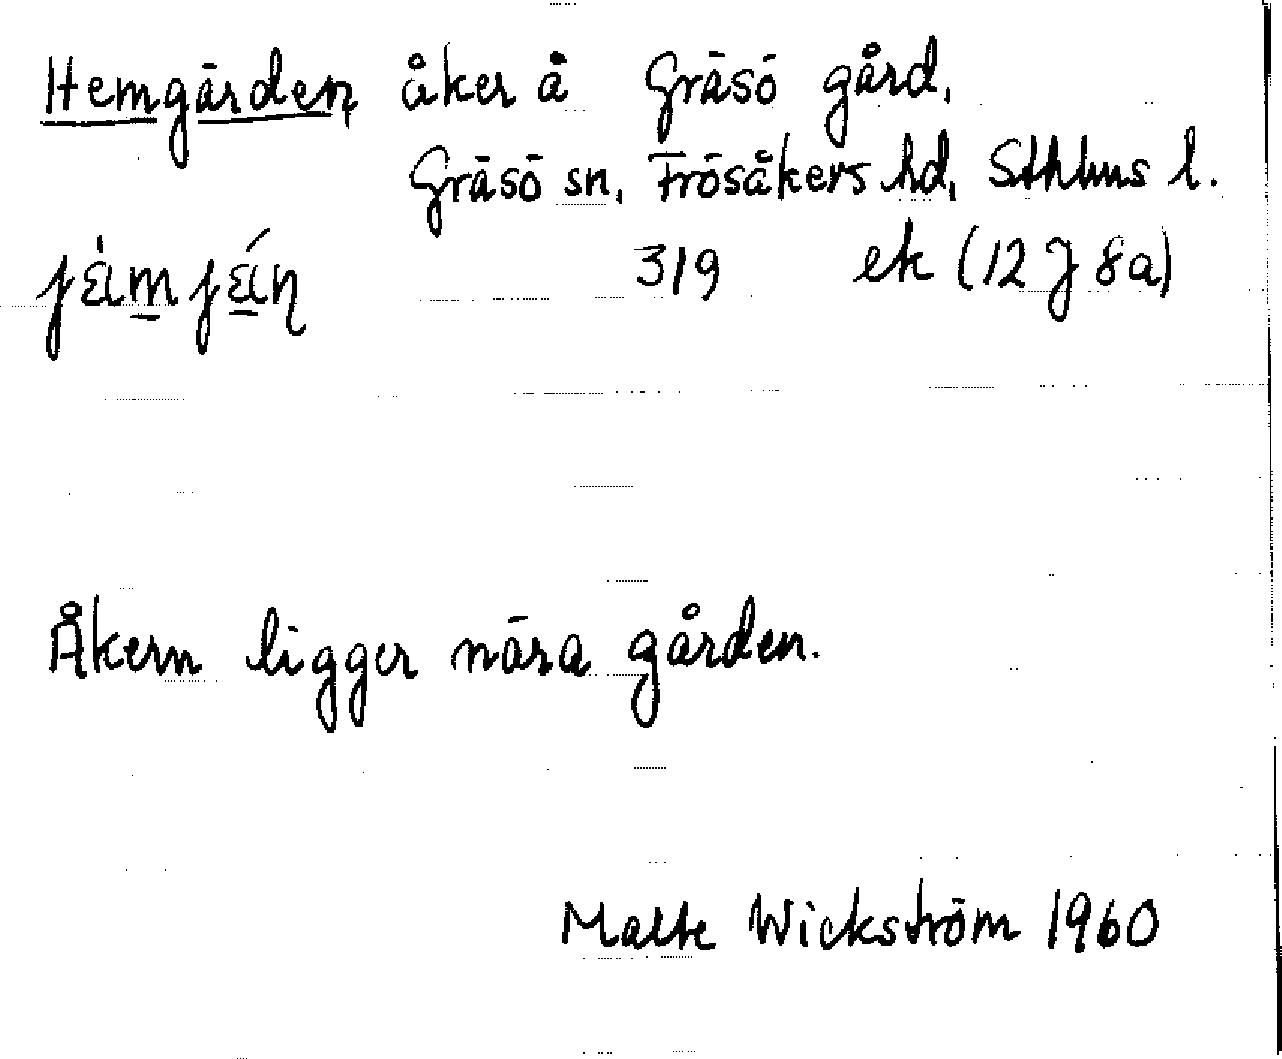 Hemgärden, åker å Gräsö gård,
Gräsö sn, Frösåkers hd, Sthlms l.
319 ek (12 J 8a)
Åkern ligger nära gården.
Malte Wickström 1960